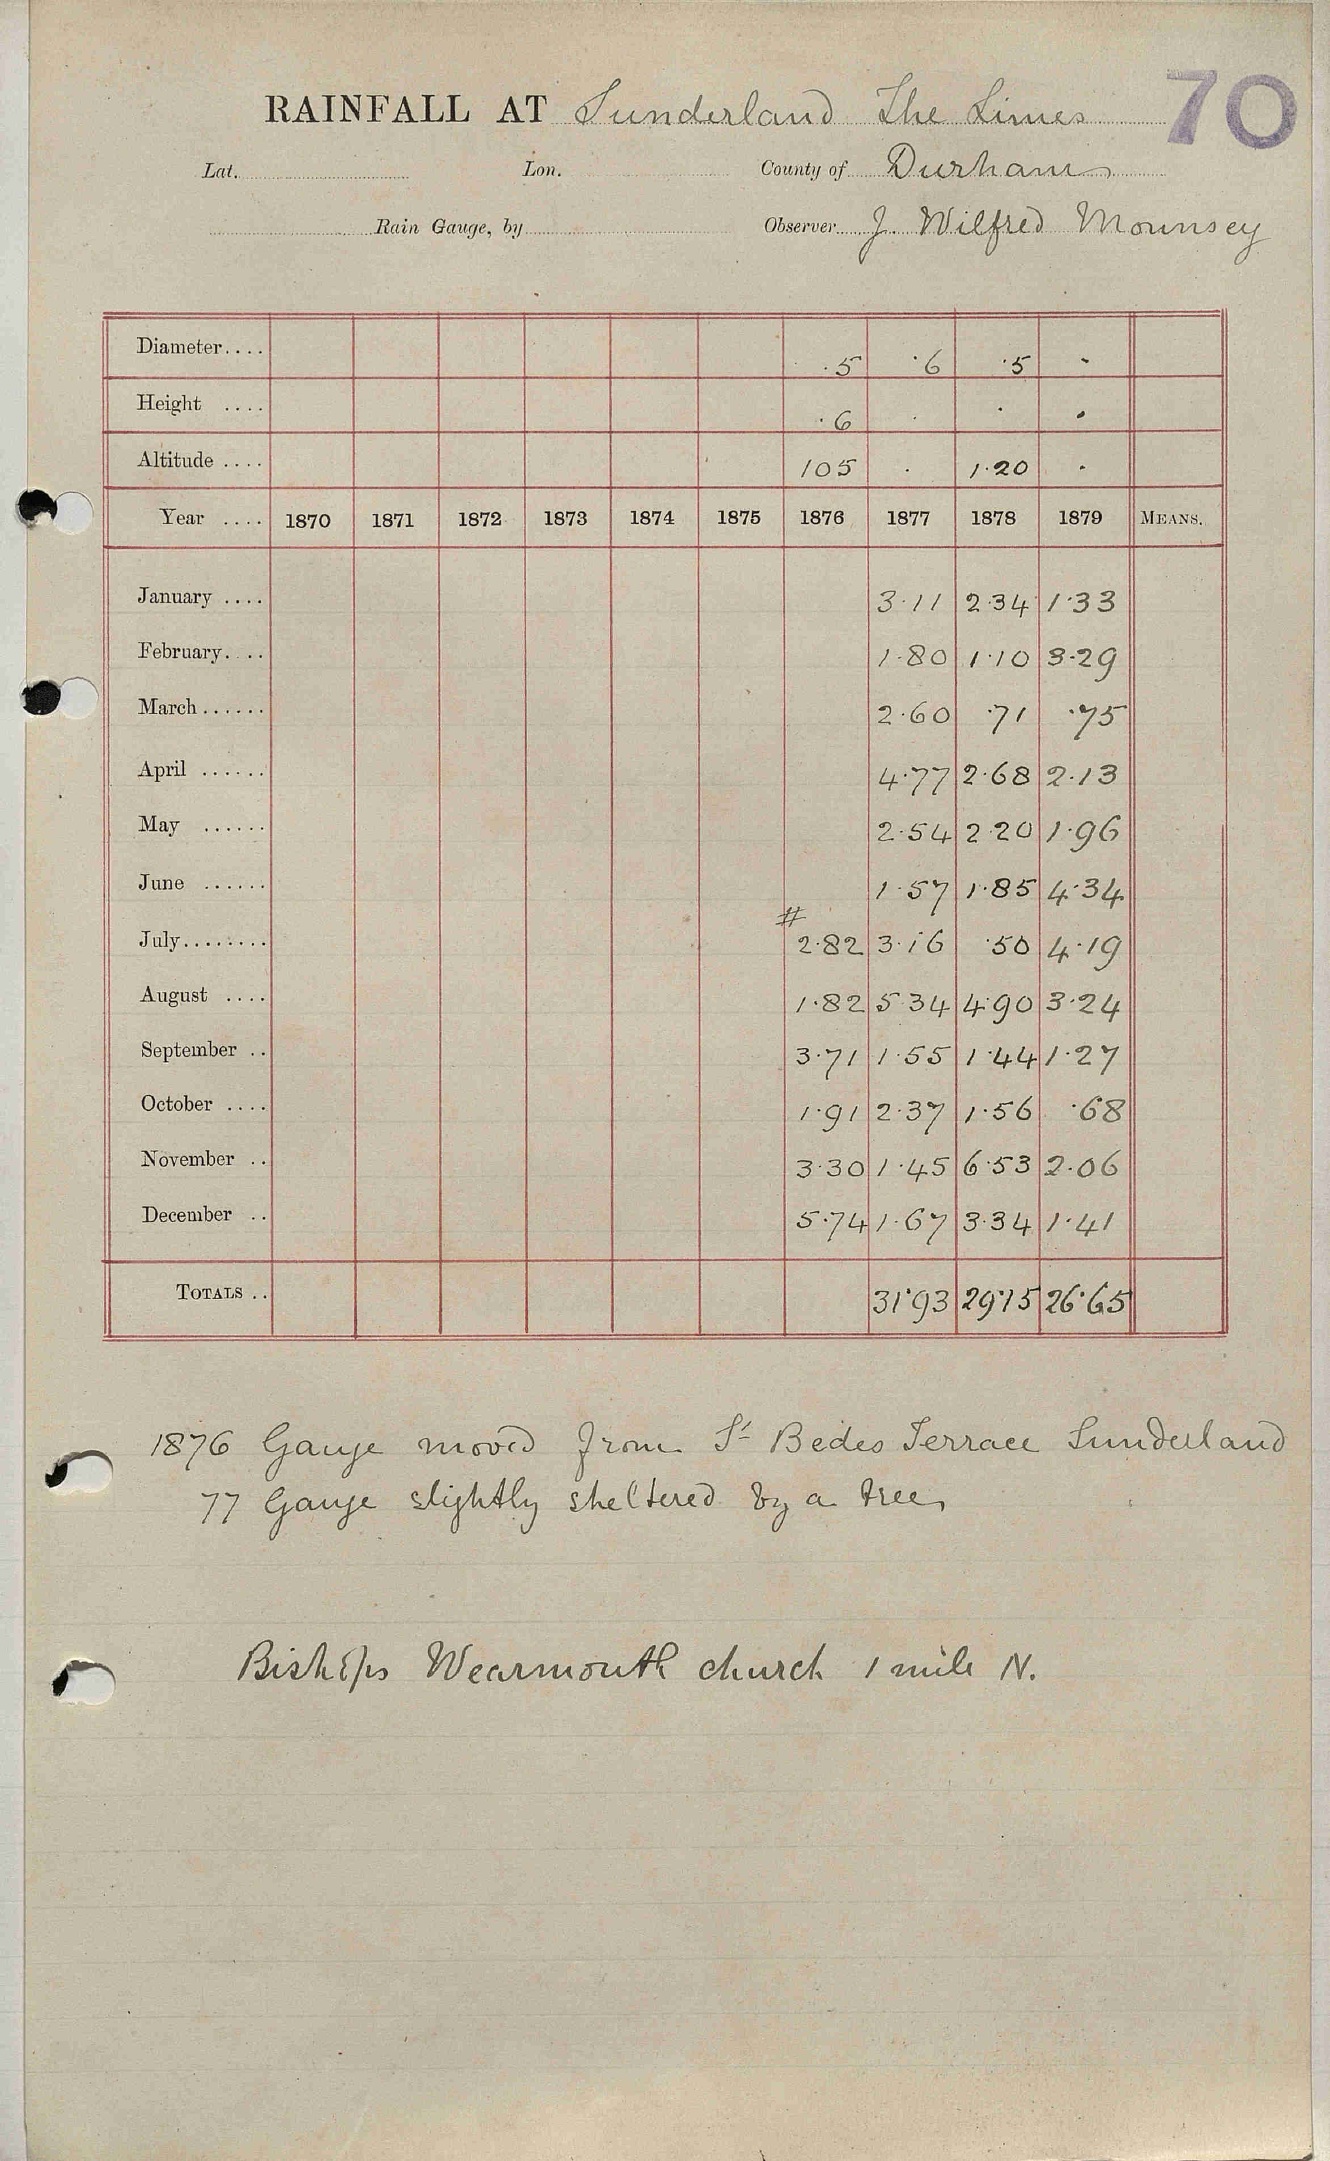 70
RAINFALL AT Sunderland The Limes
Lat. Lon. County of Durham
Rain Gauge, by Observer J. Wilfred Mounsey
Diameter.... ·5 ·6 ·5 ·
Height .... ·6 · · ·
Altitude .... 105 · 1·20 ·
Year .... 1870 1871 1872 1873 1874 1875 1876 1877 1878 1879 MEANS.
January .... 3·11 2·34 1·33
February.... 1·80 1·10 3·29
March...... 2·60 ·71 ·75
April ...... 4·77 2·68 2·13
May ...... 2·54 2·20 1·96
June ...... 1·57 1·85 4·34
#
July........ 2·82 3·16 ·50 4·19
August .... 1·82 5·34 4·90 3·24
September .. 3·71 1·55 1·44 1·27
October .... 1·91 2·37 1·56 ·68
November .. 3·30 1·45 6·53 2·06
December .. 5·74 1·67 3·34 1·41
TOTALS .. 31·93 29·15 26·65
1876 Gauge moved from St Bedes Terrace Sunderland
77 Gauge slightly sheltered by a tree
Bishops Wearmouth church 1 mile N.